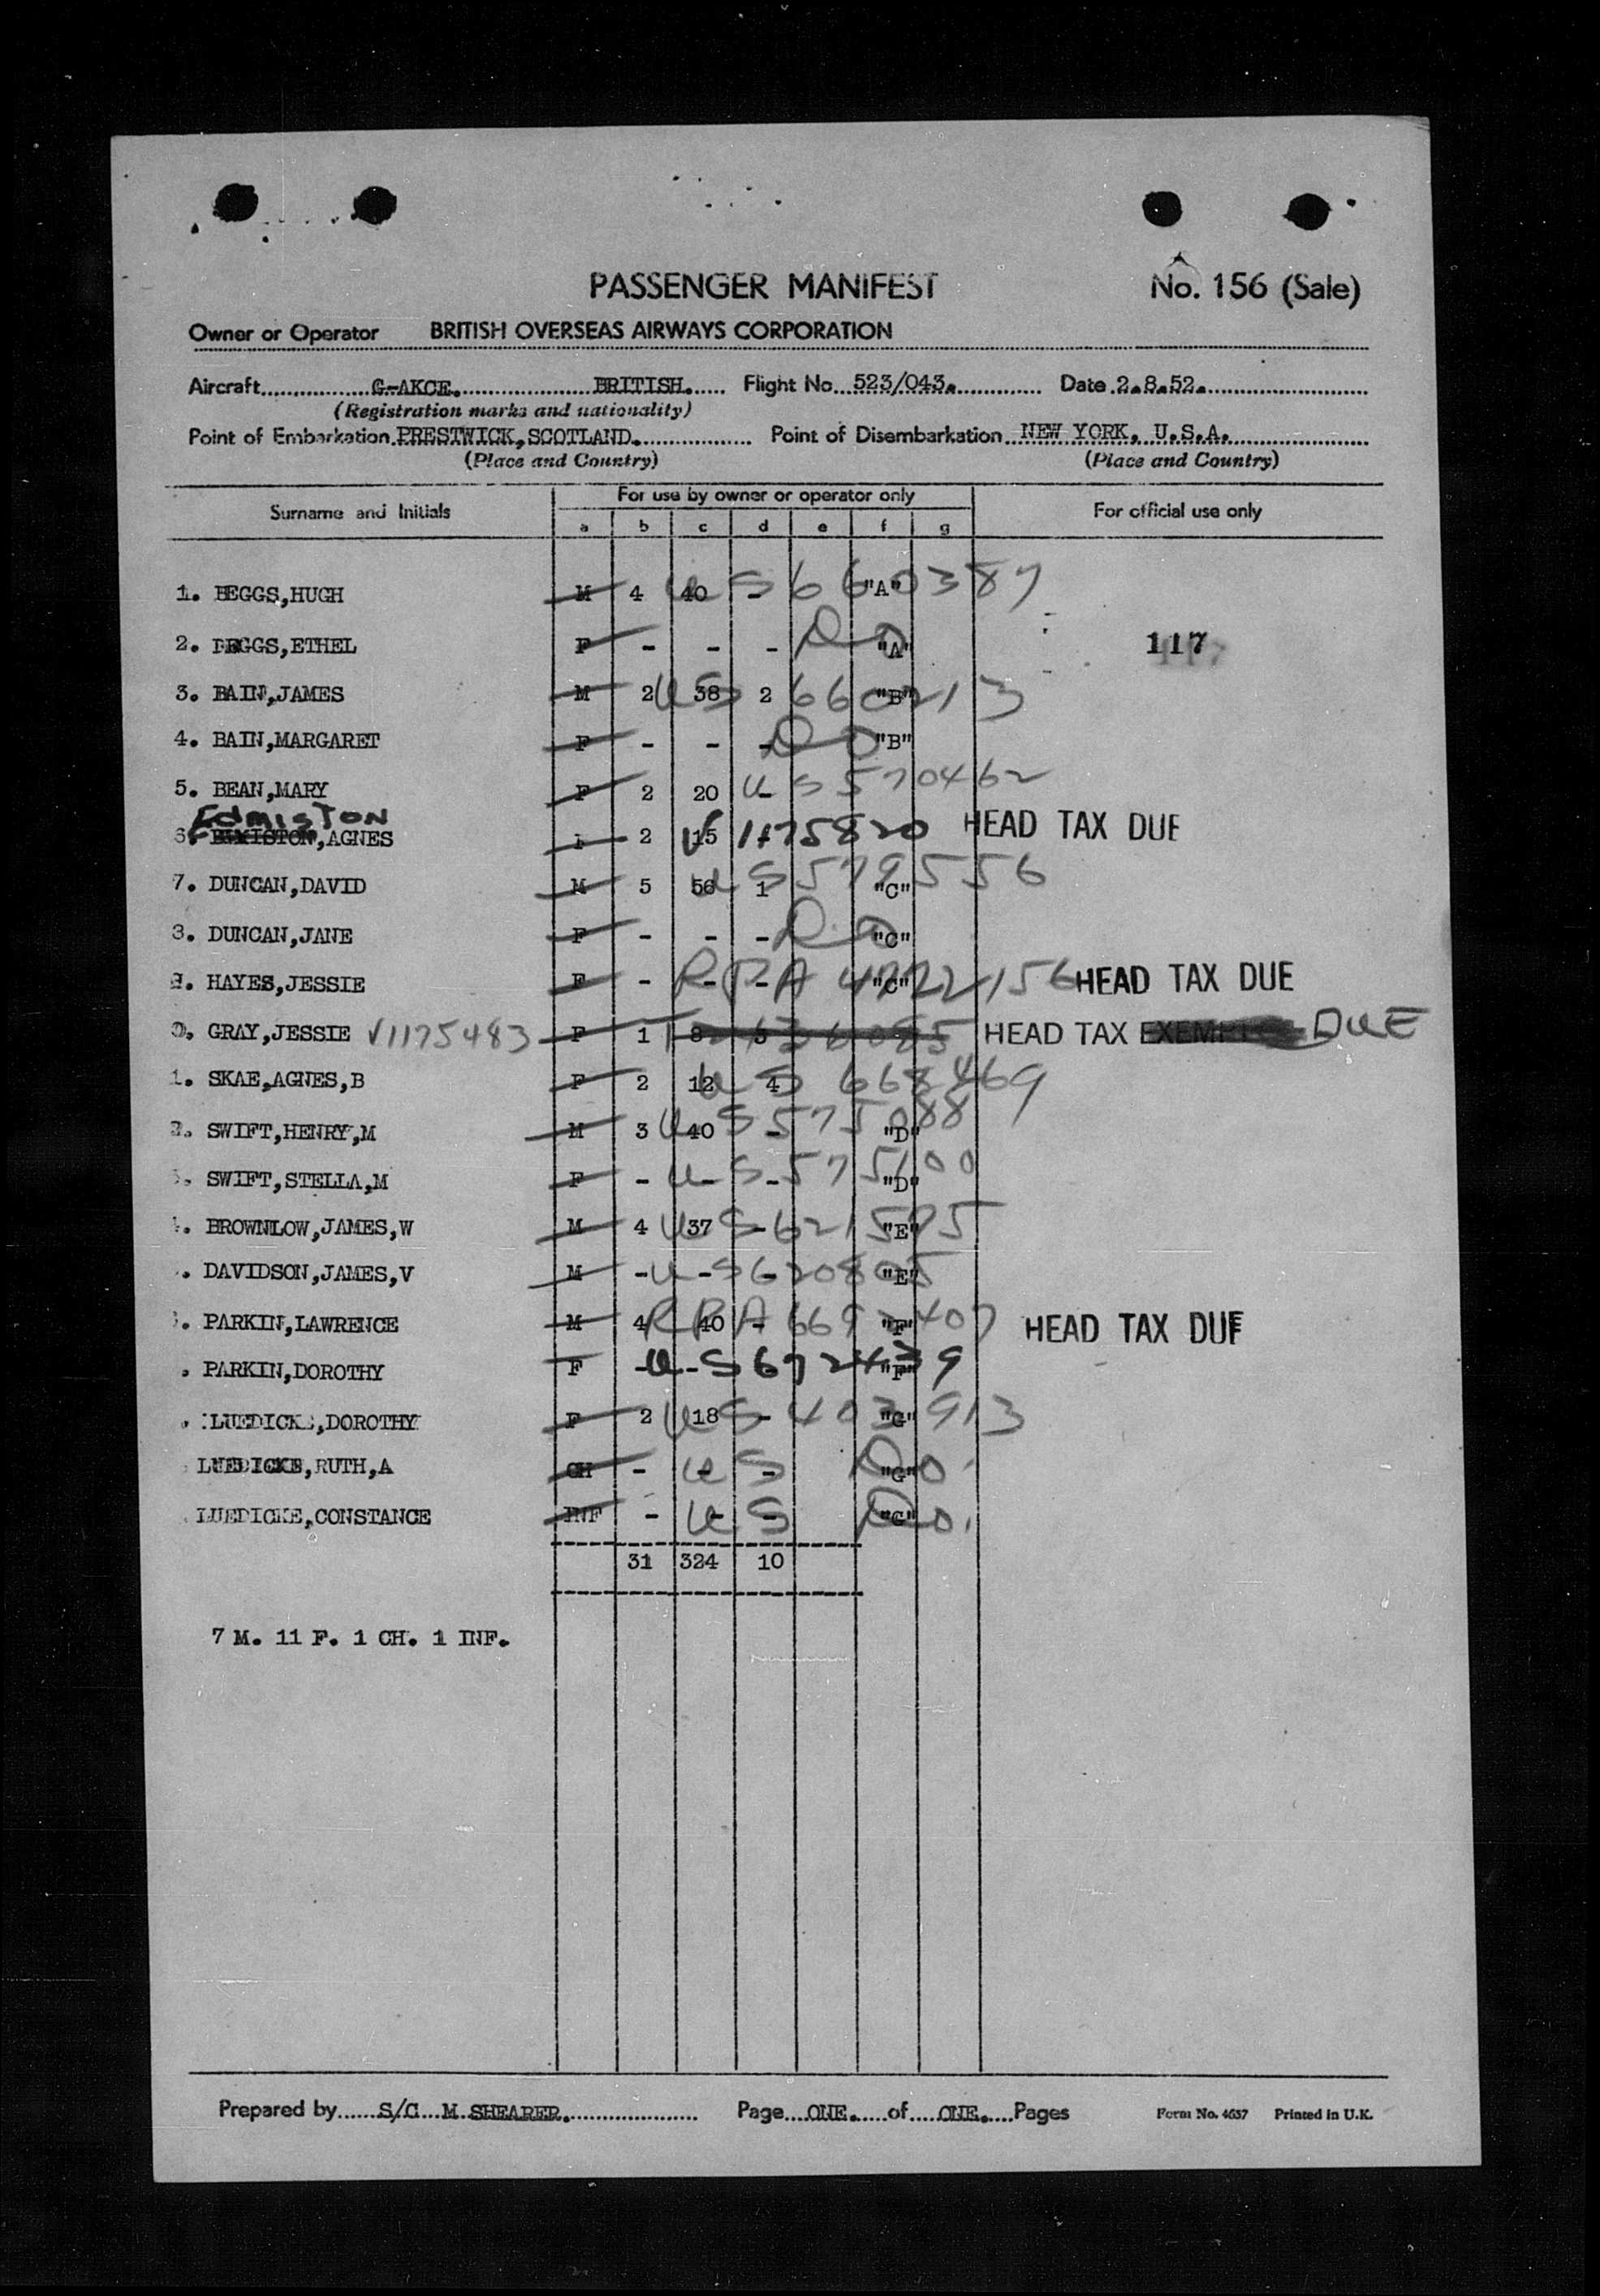 PASSENGER MANIFEST No. 156 (Sale)
Owner or Operator BRITISH OVERSEAS AIRWAYS CORPORATION
Aircraft G-AKCE. BRITISH. Flight No. 523/043. Date 2.8.52.
(Registration marks and nationality)
Point of Embarkation PRESTWICK, SCOTLAND. Point of Disembarkation NEW YORK. U.S.A.
(Place and Country) (Place and Country)
Surname and Initials For use by owner or operator only For official use only
a b c d e f g
1. BEGGS,HUGH M 4 40 - "A" US 660387
2. BEGGS,ETHEL F - - - "A" DO 117
3. BAIN,JAMES M 2 38 2 "B" US 660213
4. BAIN,MARGARET F - - - "B" DO
5. BEAN,MARY F 2 20 - US 570462
EDMISTON
6. ,AGNES 2 15 V1175820 HEAD TAX DUE
7. DUNCAN,DAVID M 5 56 1 "C" US 579556
8. DUNCAN,JANE F - - - "C" DO
HAYES,JESSIE F - - - "C" RPA 4722156 HEAD TAX DUE
GRAY,JESSIE V1175483 F 1 8 3 HEAD TAX EXEMPT DUE
1. SKAE,AGNES,B F 2 12 4 US 668469
SWIFT,HENRY,M M 3 40 - "D" US 575088
SWIFT,STELLA,M F - - - "D" US 575100
BROWNLOW,JAMES,W M 4 37 - "E" US 621595
DAVIDSON,JAMES,V M - - - "E" US 620805
PARKIN,LAWRENCE M 4 40 - "F" RPA HEAD TAX DUE
PARKIN,DOROTHY F - - - "F" US 672439
LUEDICKE,DOROTHY F 2 18 - "G" US 403913
LUEDICKE,RUTH,A CH - - - "G" US DO.
LUEDICKE,CONSTANCE INF - - - "G" US DO.
31 324 10
7 M. 11 F. 1 CH. 1 INF.
Prepared by S/C M SHEARER. Page ONE. of ONE. Pages Form No. 4637 Printed in U.K.